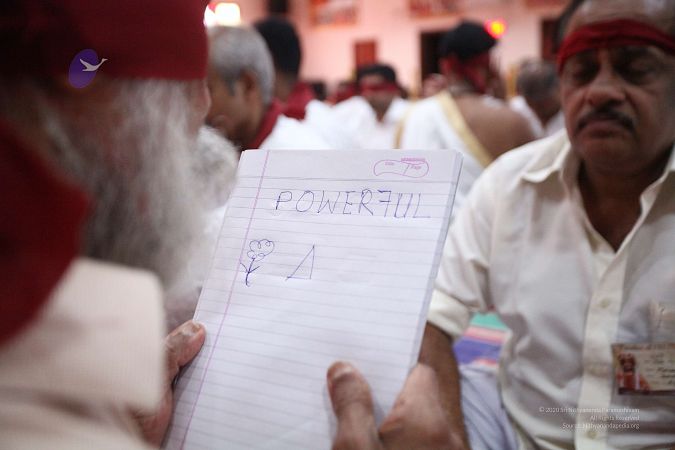 POWERFUL
© 2020 Sri Nithyananda Paramashivam
All Rights Reserved
Source: Nithyanandapedia.org